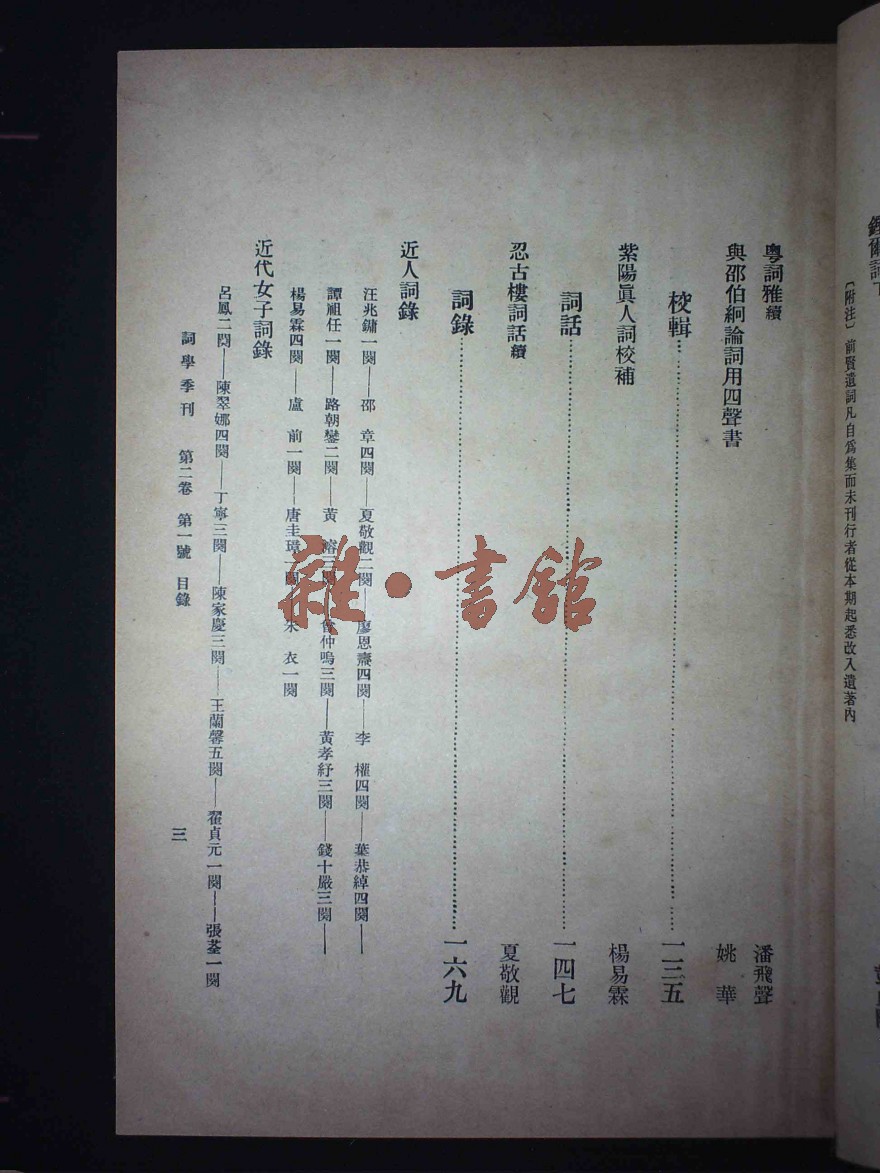 〔附注〕前賢遺詞凡自爲集而未刊行者從本期起悉改入遺著內
粵詞雅續 潘飛聲
與邵伯絅論詞用四聲書 姚 華
校輯 一三五
紫陽眞人詞校補 楊易霖
詞話 一四七
忍古樓詞話續 夏敬觀
詞錄 一六九
近人詞錄
汪兆鏞一闋——邵 章四闋——夏敬觀二闋——廖恩燾四闋——李 權四闋——葉恭綽四闋——
譚祖任一闋——路朝鑾二闋——黃 闋——曾仲鳴三闋——黃孝紓三闋——錢十嚴三闋——
楊易霖四闋——盧 前一闋——唐圭璋一闋——朱 衣一闋
近代女子詞錄
呂鳳二闋——陳翠娜四闋——丁寧三闋——陳家慶三闋——王蘭馨五闋——翟貞元一闋——張荃一闋
詞學季刊 第二卷 第一號 目錄
三
雜·書館